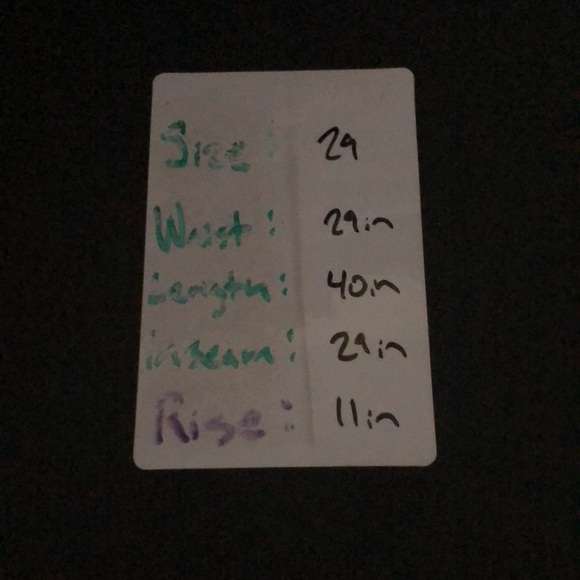 Size: 29
Waist: 29in
Length: 40in
inseam: 29in
Rise: 11in